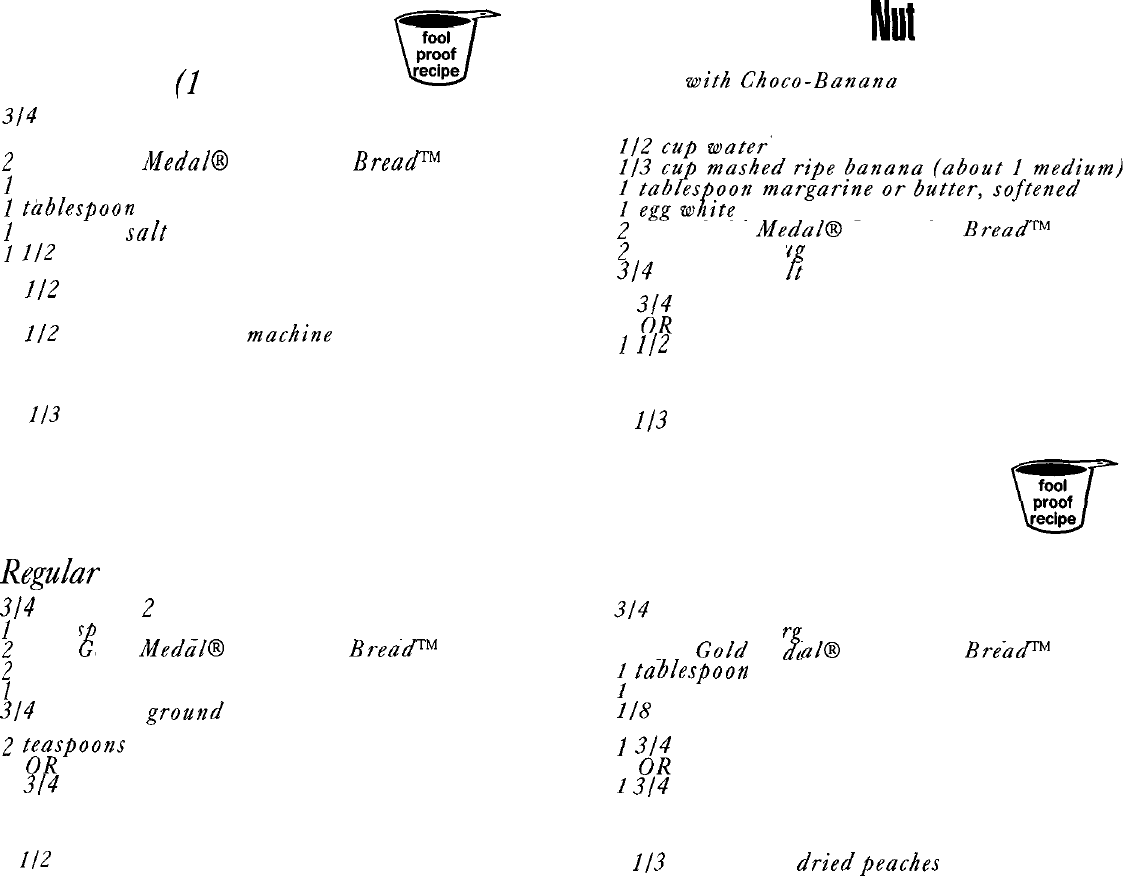 fool
proof
recipe
(1
3/4
2 Medal® Bread™
1
1 tablespoon
1 salt
1 1/2
1/2
1/2 machine
1/3
Nut
with Choco-Banana
1/2 cup water
1/3 cup mashed ripe banana (about 1 medium)
1 tablespoon margarine or butter, softened
1 egg white
2 Medal® Bread™
2
3/4
3/4
OR
1 1/2
1/3
Regular
3/4 2
1
2 Medal® Bread™
2
1
3/4 ground
2 teaspoons
OR
3/4
1/2
fool
proof
recipe
3/4
Gold Bread™
1 tablespoon
1
1/8
1 3/4
OR
1 3/4
1/3 dried peaches